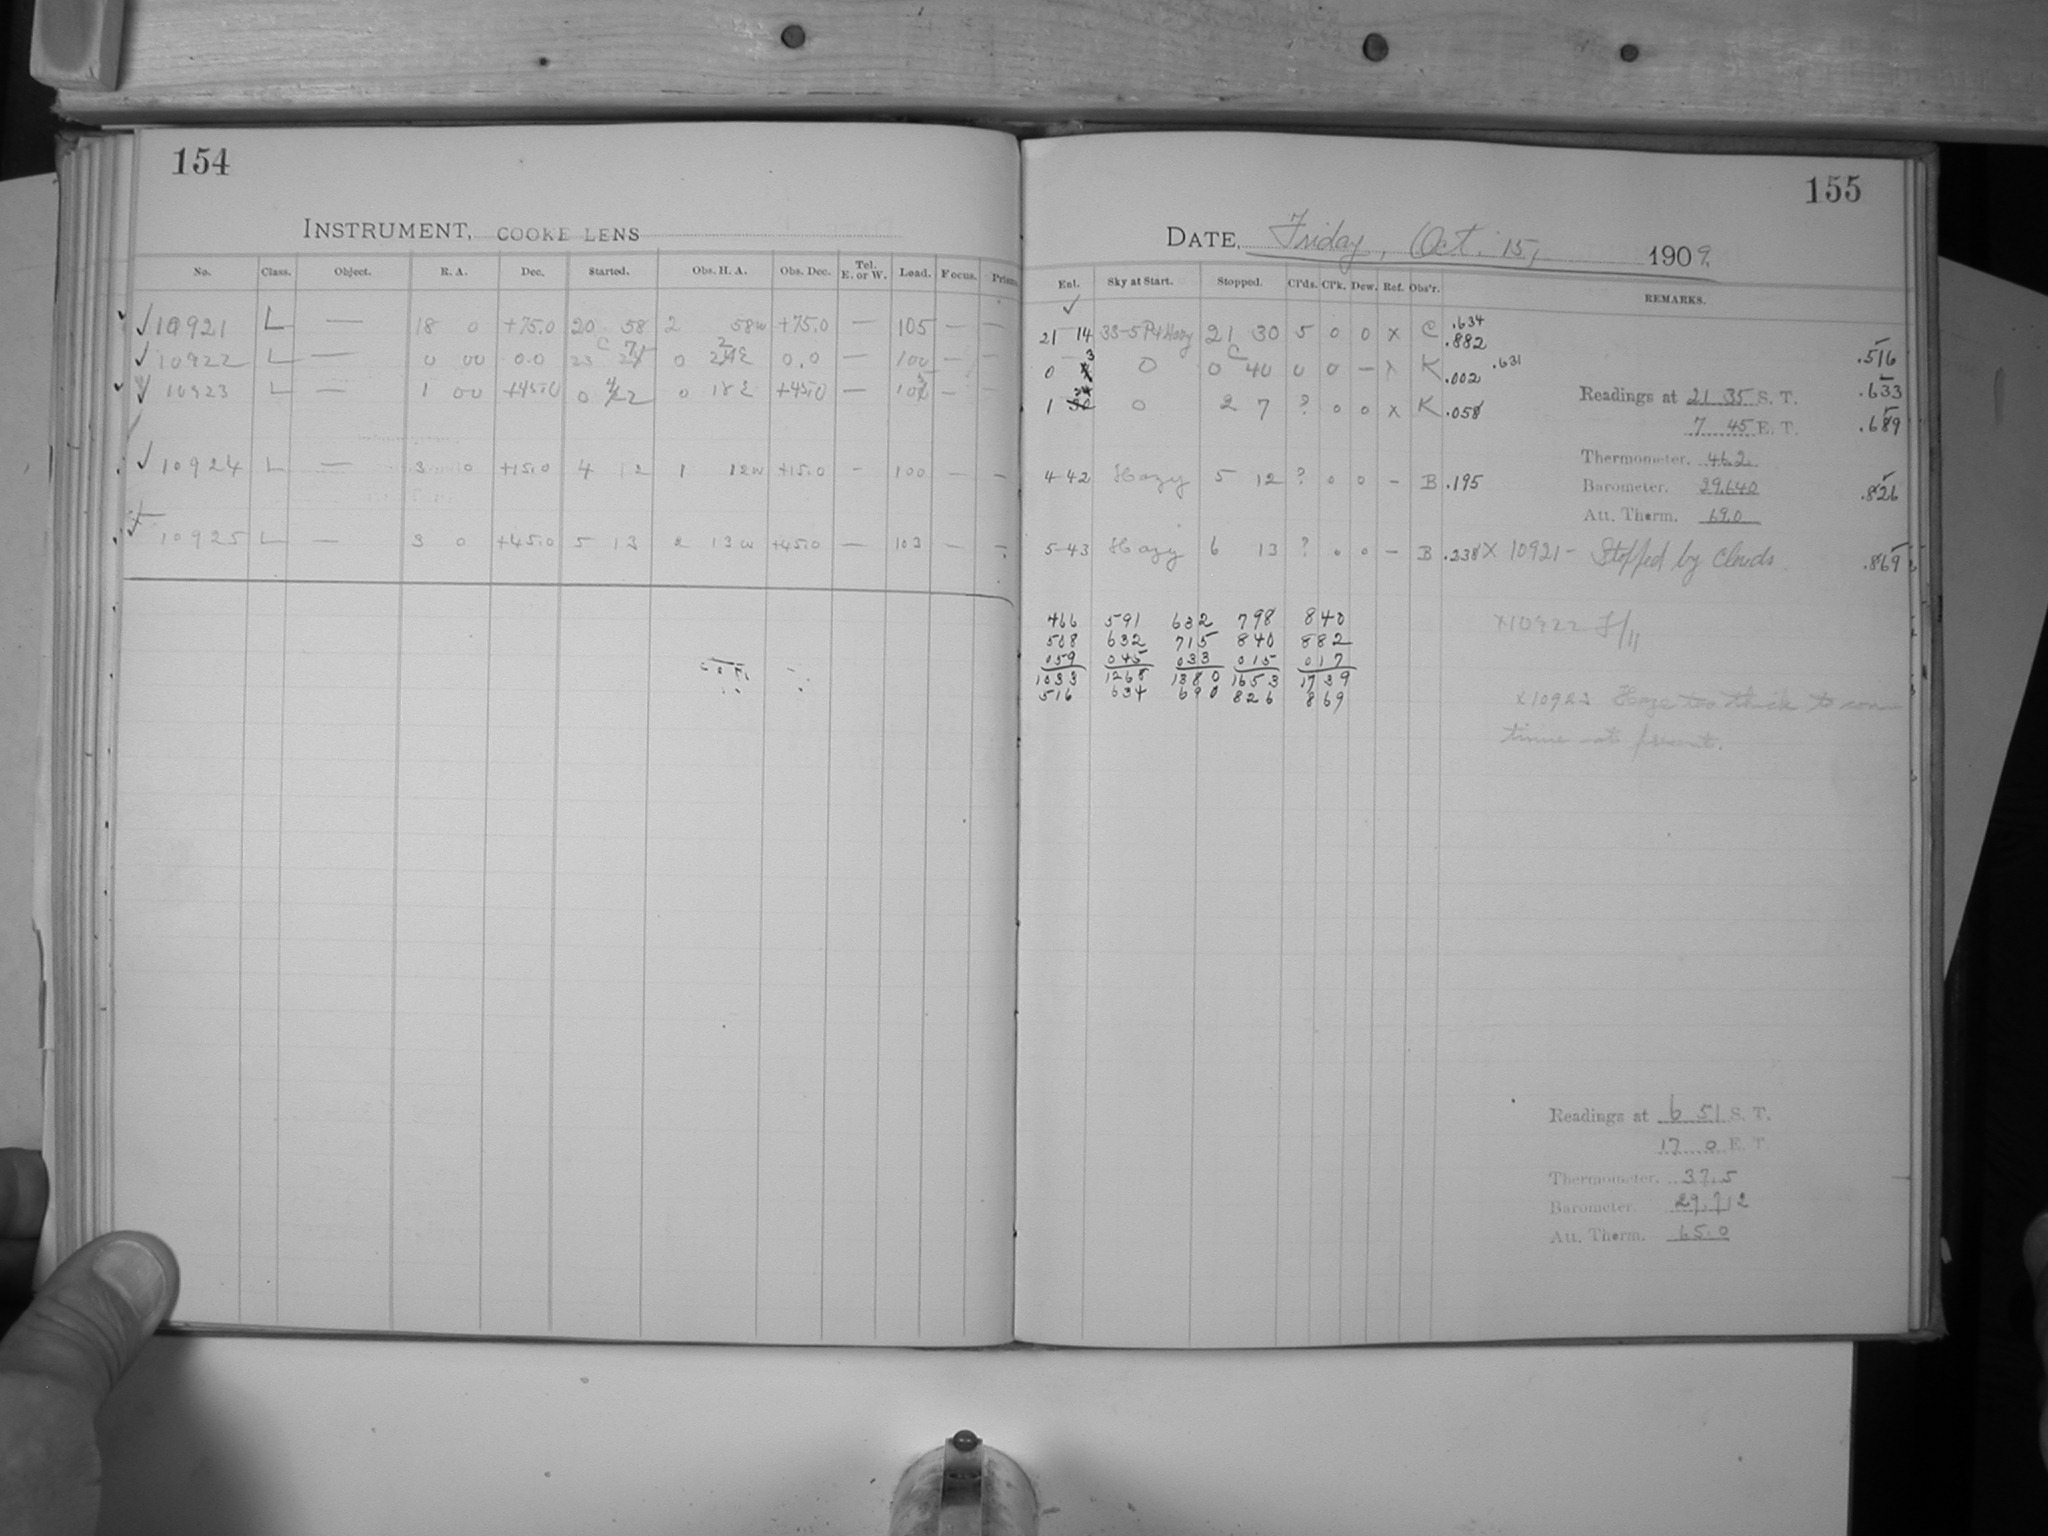 154
INSTRUMENT, COOKE LENS
No. Class. Object. R. A. Dec. Started. Obs. H. A. Obs. Dec. Tel. E. or W. Load. Focus.
10921 L — 18 0 +75.0 20 58 2 58w +75.0 — 105 — —
10922 L — 0 00 0.0 23 0 0.0 — 100 — —
10923 L — 1 00 +45.0 0 22 0 18E +45.0 — — —
10924 L — 3 0 +15.0 4 12 1 12w +15.0 - 100 — —
10925 L — 3 0 +45.0 5 13 2 13w +45.0 — 103 — —
155
DATE, Friday, Oct. 15, 1909.
Exl. Sky at Start. Stopped. Cl'ds. Cl'k. Dew. Ref. Obs'r. REMARKS.
21 14 33-5 Hazy 21 30 5 0 0 x C .634 .882 .516
0 3 0 0 40 0 0 — x K .002 .631 .633
1 0 2 7 ? 0 0 x K .058 .689
4 42 Hazy 5 12 ? 0 0 - B .195 .826
5-43 Hazy 6 13 ? 0 0 - B .238 X 10921 - Stopped by Clouds .869
Readings at 21 35 S. T.
7 45 E. T.
Thermometer. 46.2
Barometer. 29.640
Att. Therm. 69.0
466 591 632 798 840
508 632 715 840 882
059 045 033 015 017
1033 1268 1380 1653 1739
516 634 690 826 869
X10922 f/11
X10923 Haze too thick to con
tinue at present.
Readings at 6 51 S. T.
17 0 E. T.
Thermometer. 37.5
Barometer. 29.712
Att. Therm. 65.0